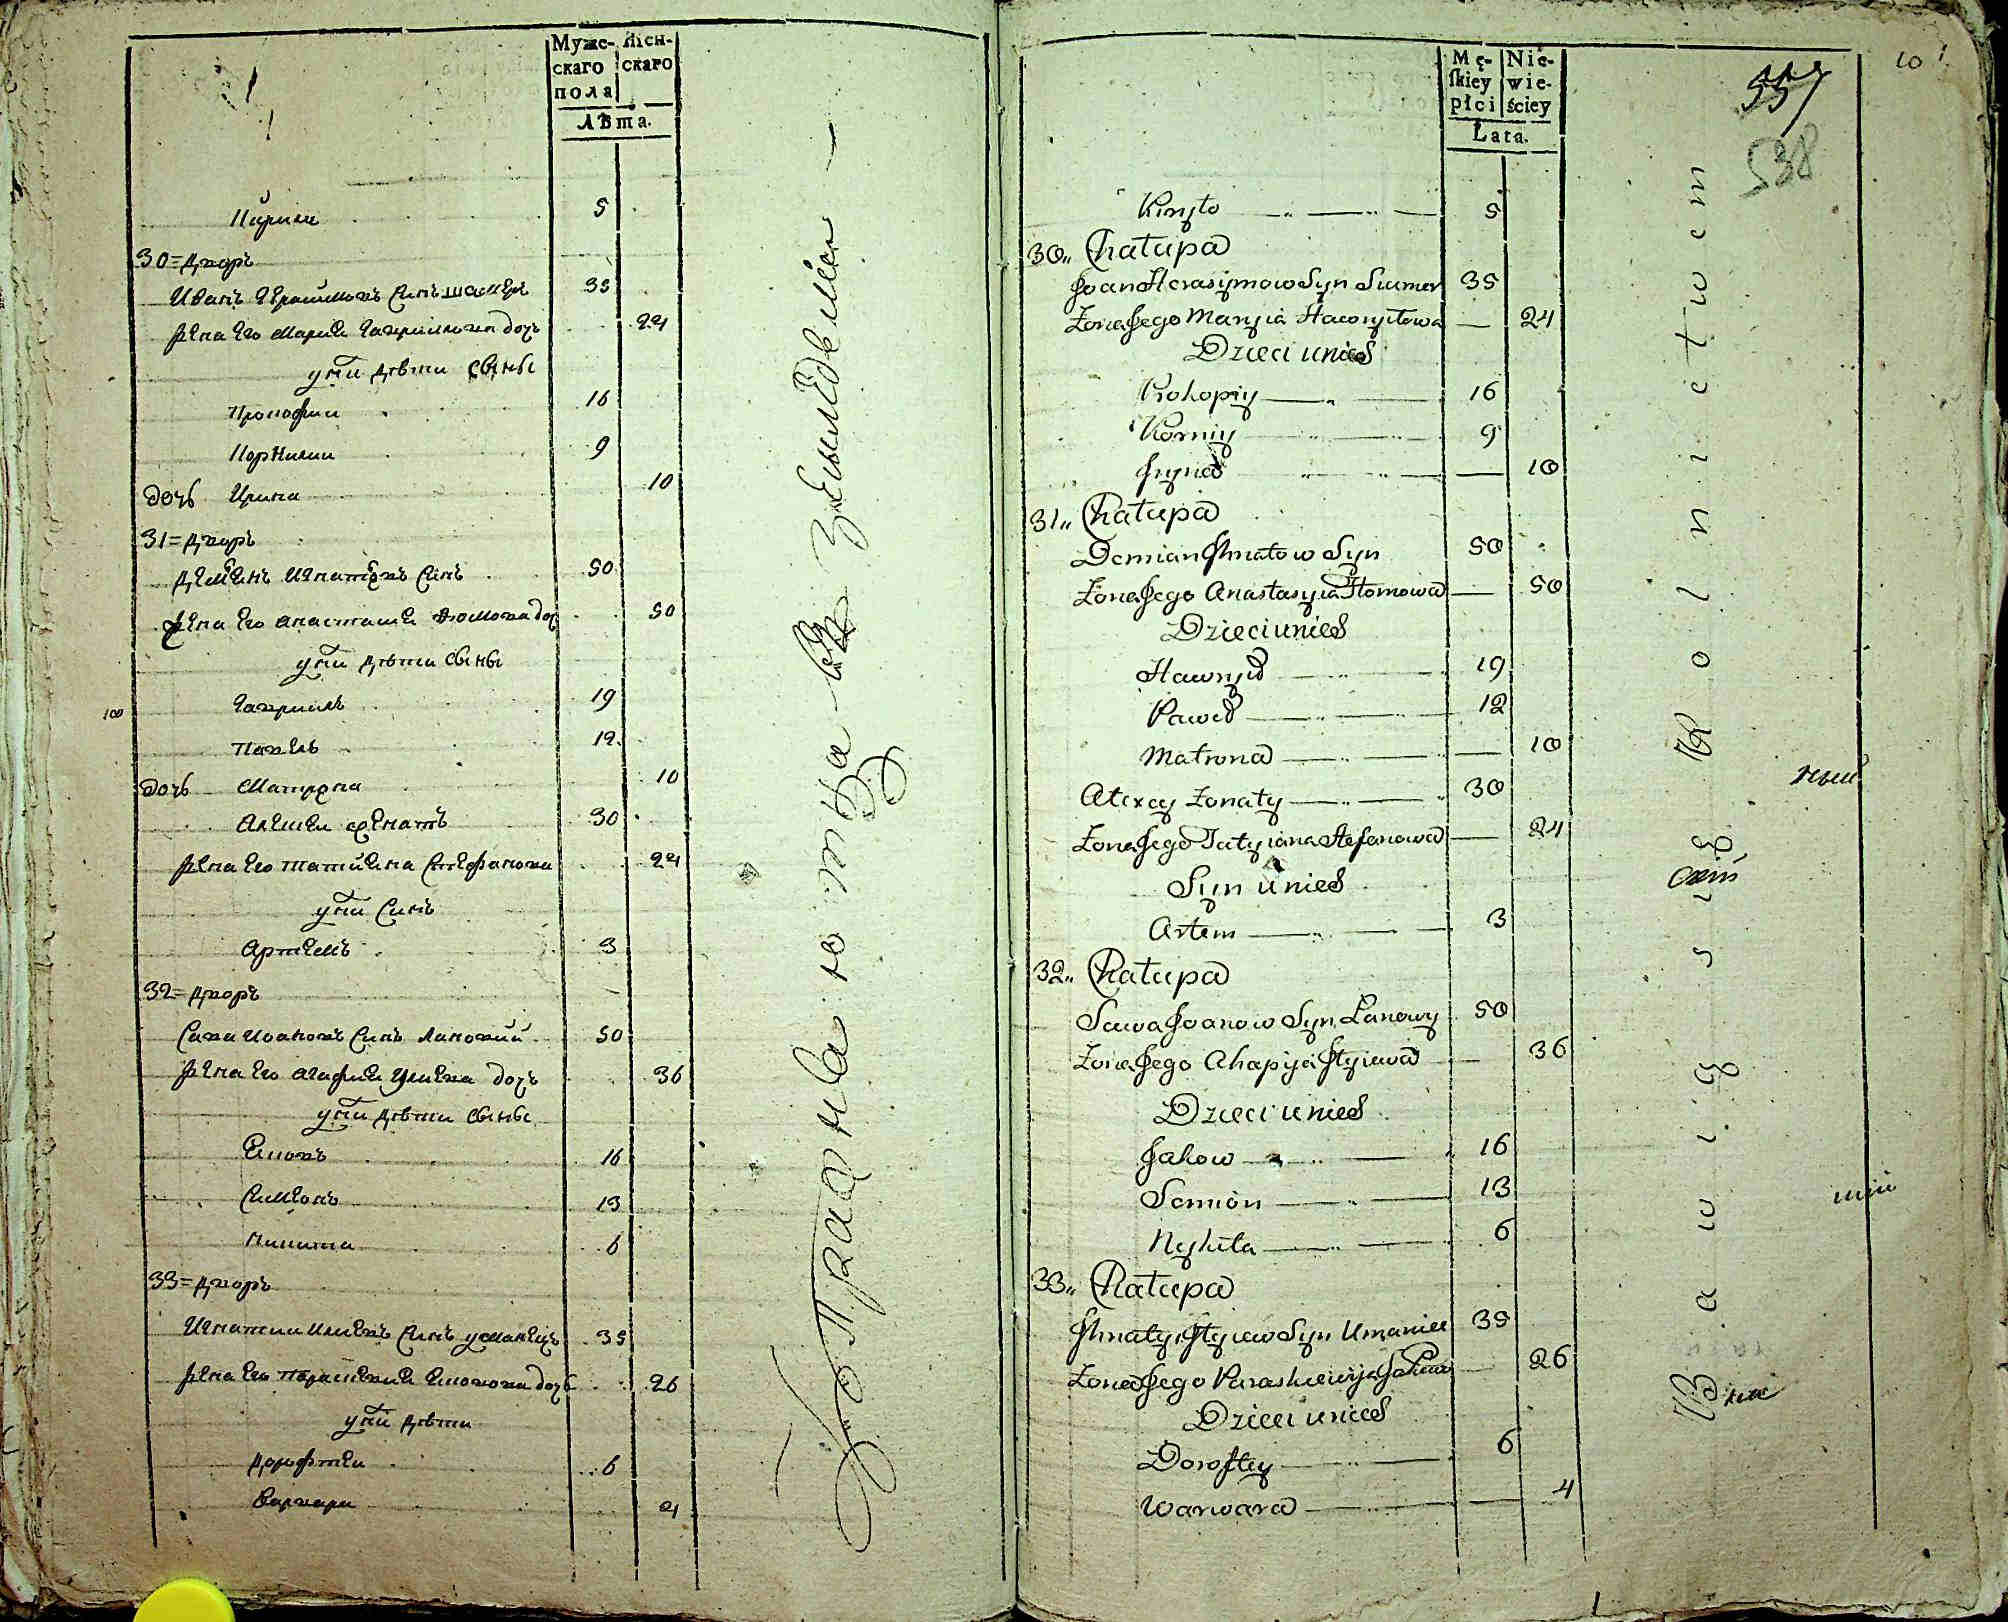 Муже- Жен-
скаго скаго
пола
Лѣта.
Кирилъ 5
30=дворъ
Иванъ Герасимовъ синъ 35
жена его Мария Гаврилова дочь 24
у нихъ дѣти сыны
Прокофий 16
Корнилий 9
дочь Ирина 10
31=дворъ
Демянъ Игнатовъ синъ 50
жена его Анастасия Фомова доч 50
у нихъ дѣти сыны
Гаврилъ 19
100
Павелъ 12
дочь Матрона 10
Алексей женатъ 30
жена его Татияна Стефанова 24
у нихъ синъ
Артемъ 3
32=дворъ
Сава Ивановъ синъ Лановий 50
жена его Агафия Илиева дочь 36
у нихъ дѣти сыны
Яковъ 16
Симеонъ 13
Никита 6
33=дворъ
Игнатий Илиевъ синъ Уманецъ 35
жена его Параскевия Яковова дочь 26
у нихъ дѣти
Дорофтей 6
Варвара 4
Mę- Nie-
skiey wie-
płci ściey
Lata.
557
538
101
Kiryło 5
30„ Chałupa
Joan Herasymow Syn 35
Żona Jego Maryia Hawryłowa 24
Dzieci u nich
Prokopiy 16
Korniy 9
Jryna 10
31„ Chałupa
Demian Jhnatow Syn 50
Żona Jego Anastasyia Homowa 50
Dzieci u nich
Hawryło 19
Paweł 12
Matrona 10
Alexey Żonaty 30
Żona Jego Tatyiana Stefanowa 24
Syn u nich
Artem 3
32„ Chałupa
Sawa Joanow Syn Łanowy 50
Żona Jego Ahapija Jlyiewa 36
Dzieci u nich
Jakow 16
Semion 13
Nykita 6
33„ Chałupa
Jhnaty Jlyiew Syn Umaniec 35
Żona Jego Paraskiewija 26
Dzieci u nich
Doroftey 6
Warwara 4
Bawią się Rolnictwem